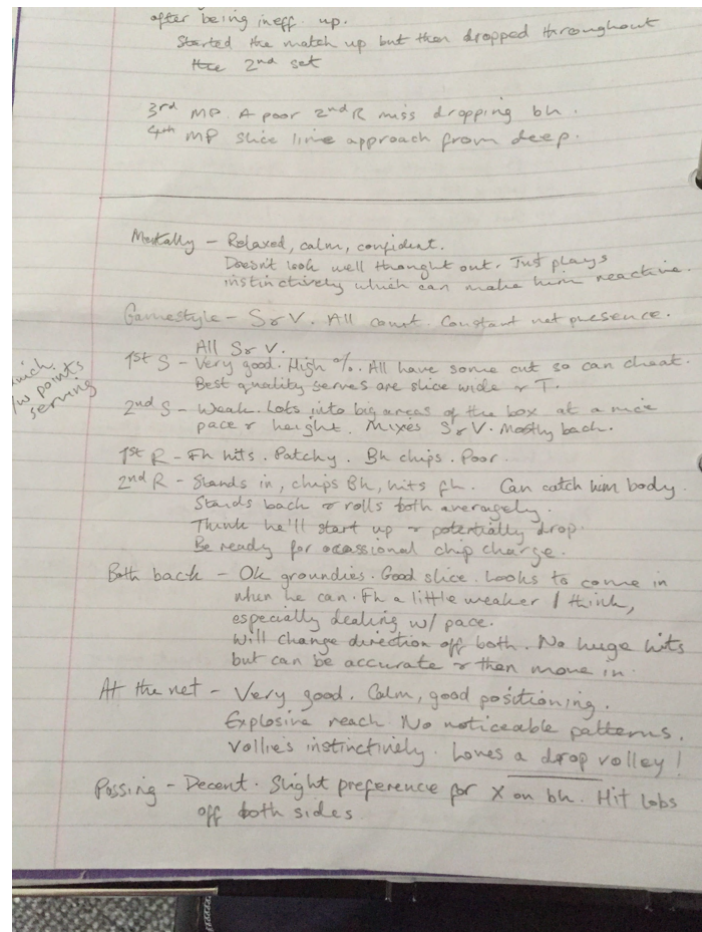 after being ineff. up.
Started the match up but then dropped throughout
the 2nd set
3rd MP A poor 2nd R miss dropping bh.
4th MP slice line approach from deep.
Mentally - Relaxed, calm, confident.
Doesn't look well thought out. Just plays
instinctively which can make him reactive.
Gamestyle - S&V. All court. Constant net presence.
All S&V.
1st S - Very good. High %. All have some cut so can cheat.
Best quality serves are slice wide & T.
/w points
serving
2nd S - Weak. Lots into big areas of the box at a nice
pace & height. Mixes S&V. Mostly back.
1st R - Fh hits. Patchy. Bh chips. Poor.
2nd R - Stands in, chips Bh, hits fh. Can catch him body.
Stands back & rolls both averagely.
Think he'll start up & potentially drop.
Be ready for ocassional chip charge.
Both back - Ok groundies. Good slice. Looks to come in
when he can. Fh a little weaker I think,
especially dealing w/ pace.
Will change direction off both. No huge hits
but can be accurate & then move in.
At the net - Very good. Calm, good positioning.
Explosive reach No noticeable patterns.
Vollies instinctively. Loves a drop volley!
Passing - Decent. Slight preference for X on bh. Hit lobs
off both sides